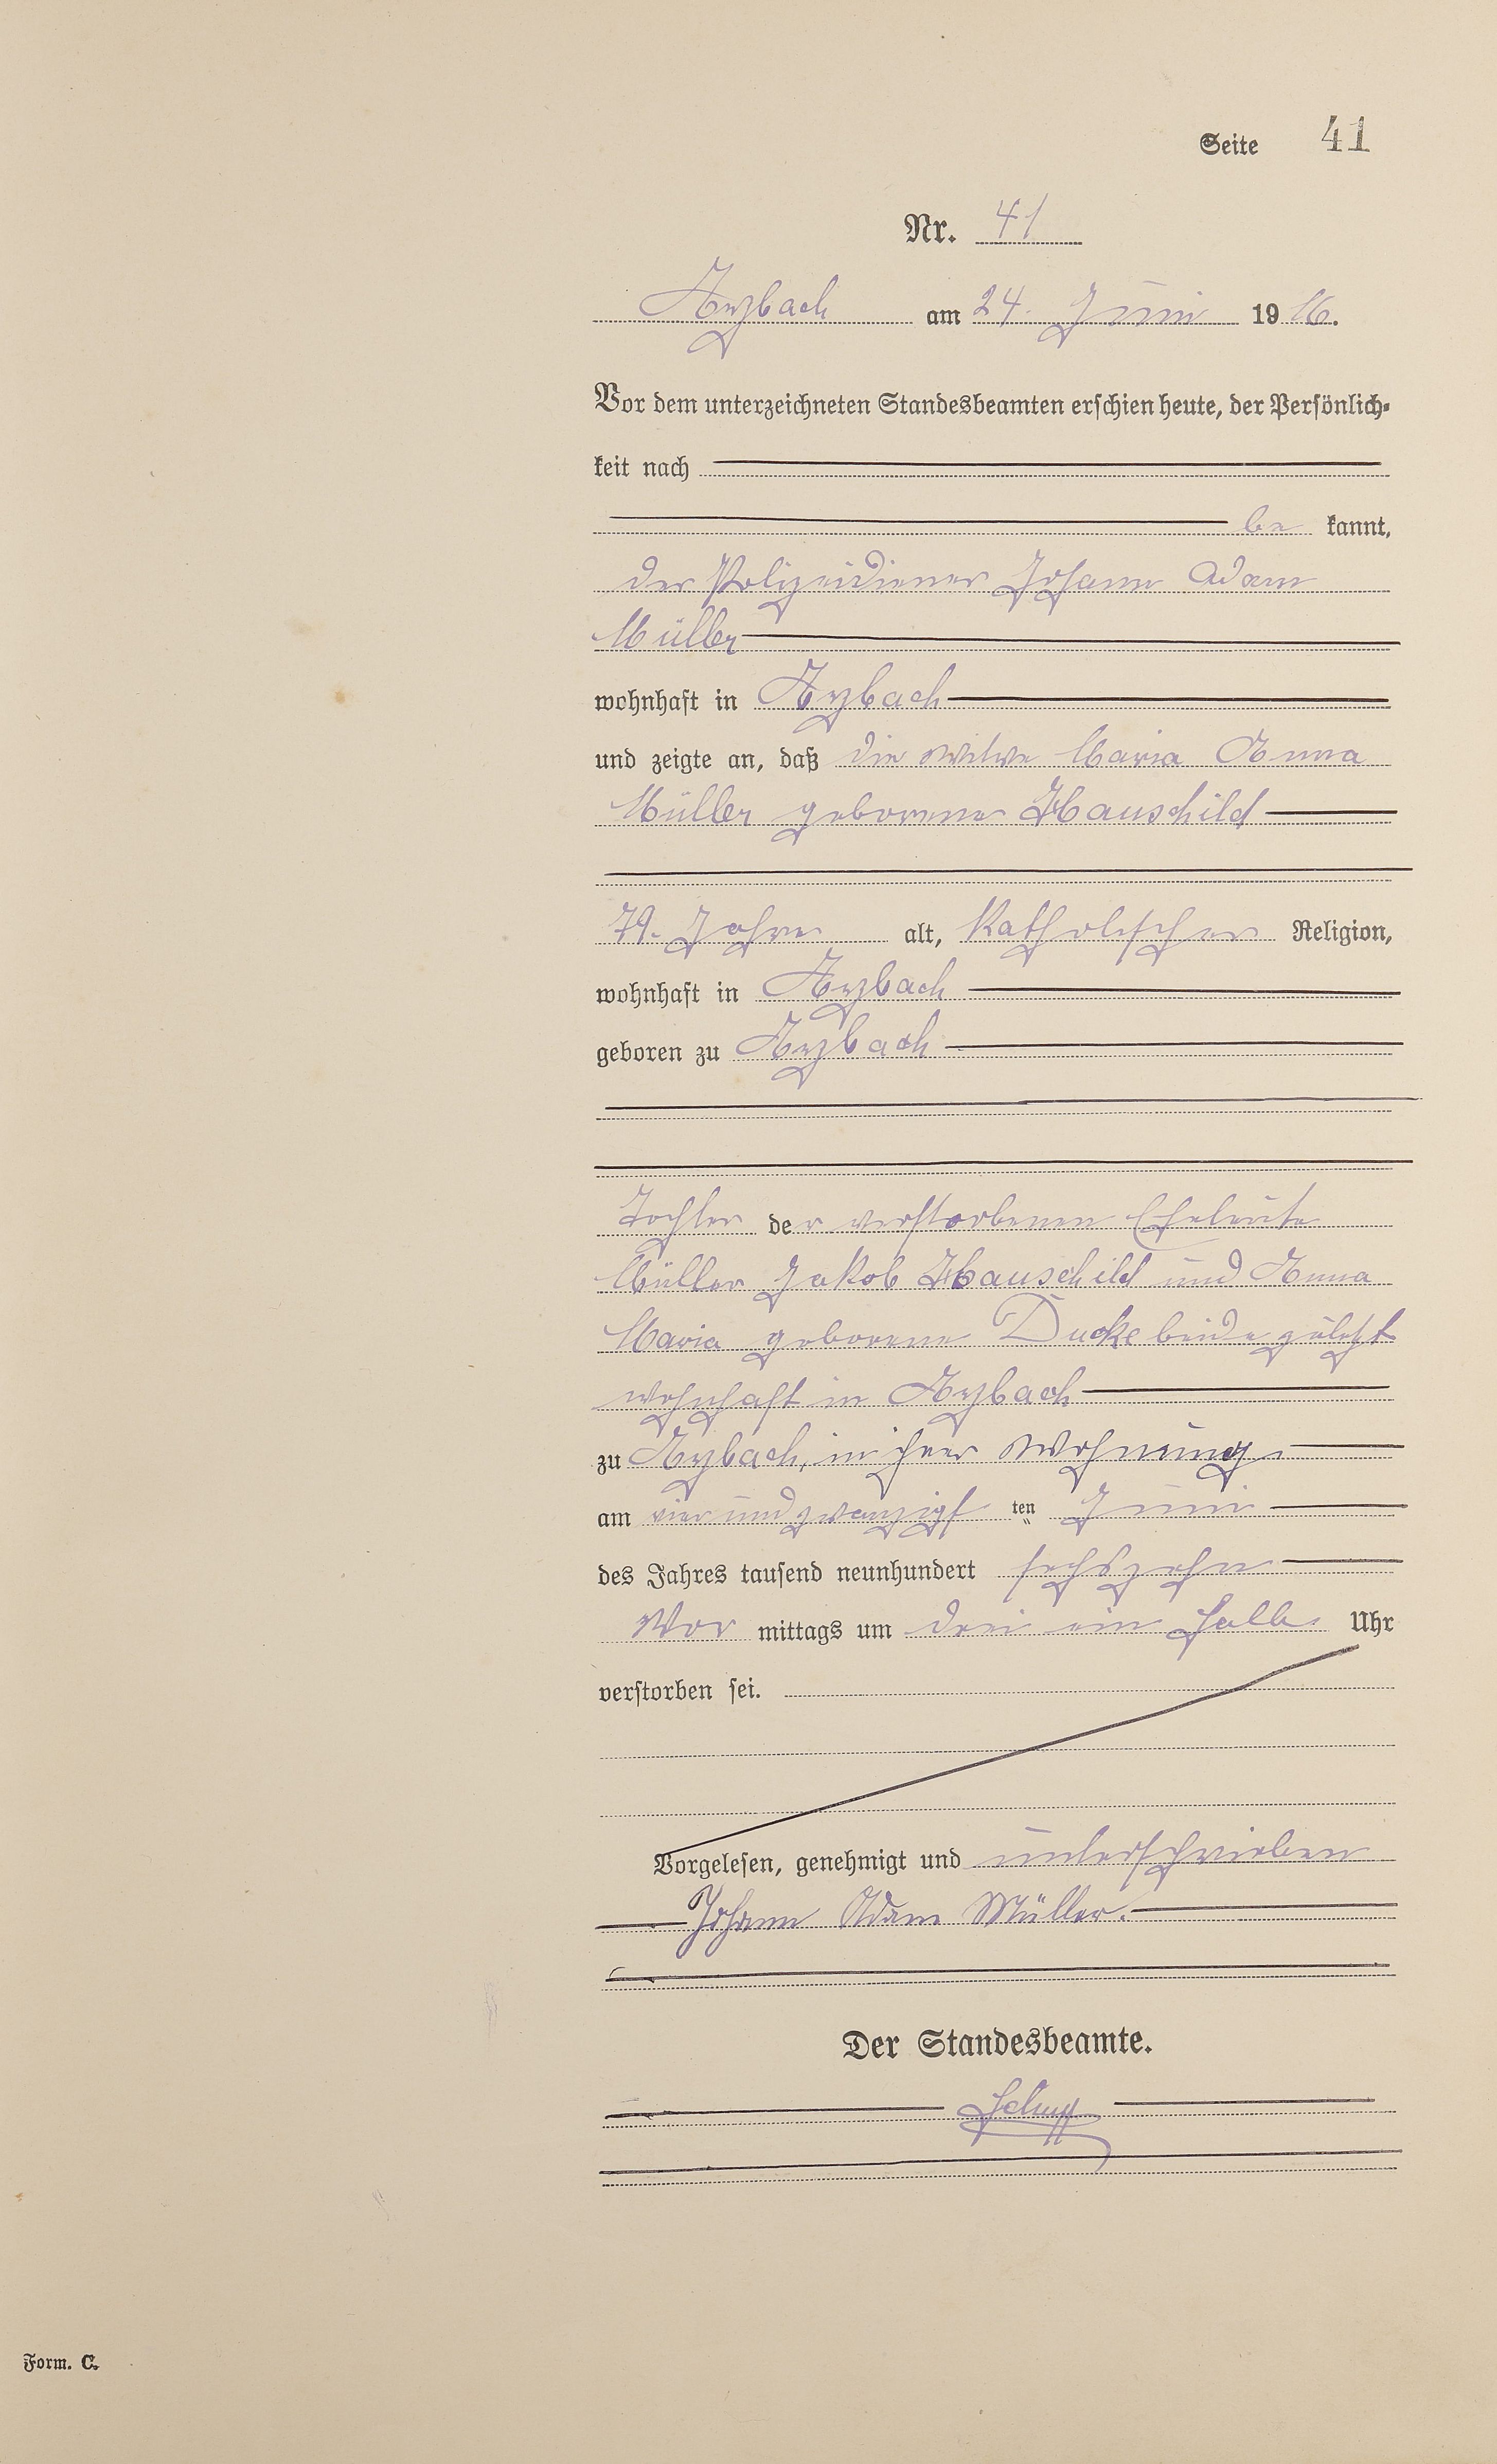 Seite 41
Nr. 41
Arzbach am 24. Juni 1916.
Vor dem unterzeichneten Standesbeamten erschien heute, der Persönlich-
keit nach
be kannt,
der Polizeidiener Johann Adam
Müller
wohnhaft in Arzbach
und zeigte an, daß die Witwe Maria Anna
Müller geborene Hauschild
79. Jahre alt, Katholischer Religion,
wohnhaft in Arzbach
geboren zu Arzbach
Tochter der verstorbenen Eheleute
Müller Jakob Hauschild und Anna
Maria geborene Ducke beide zuletzt
wohnhaft in Arzbach
zu Arzbach, in ihrer Wohnung
am vierundzwanzigst ten Juni
des Jahres tausend neunhundert sechszehn
Vor mittags um drei ein halb Uhr
verstorben sei.
Vorgelesen, genehmigt und unterschrieben
Johann Adam Müller.
Der Standesbeamte.
Form. C.